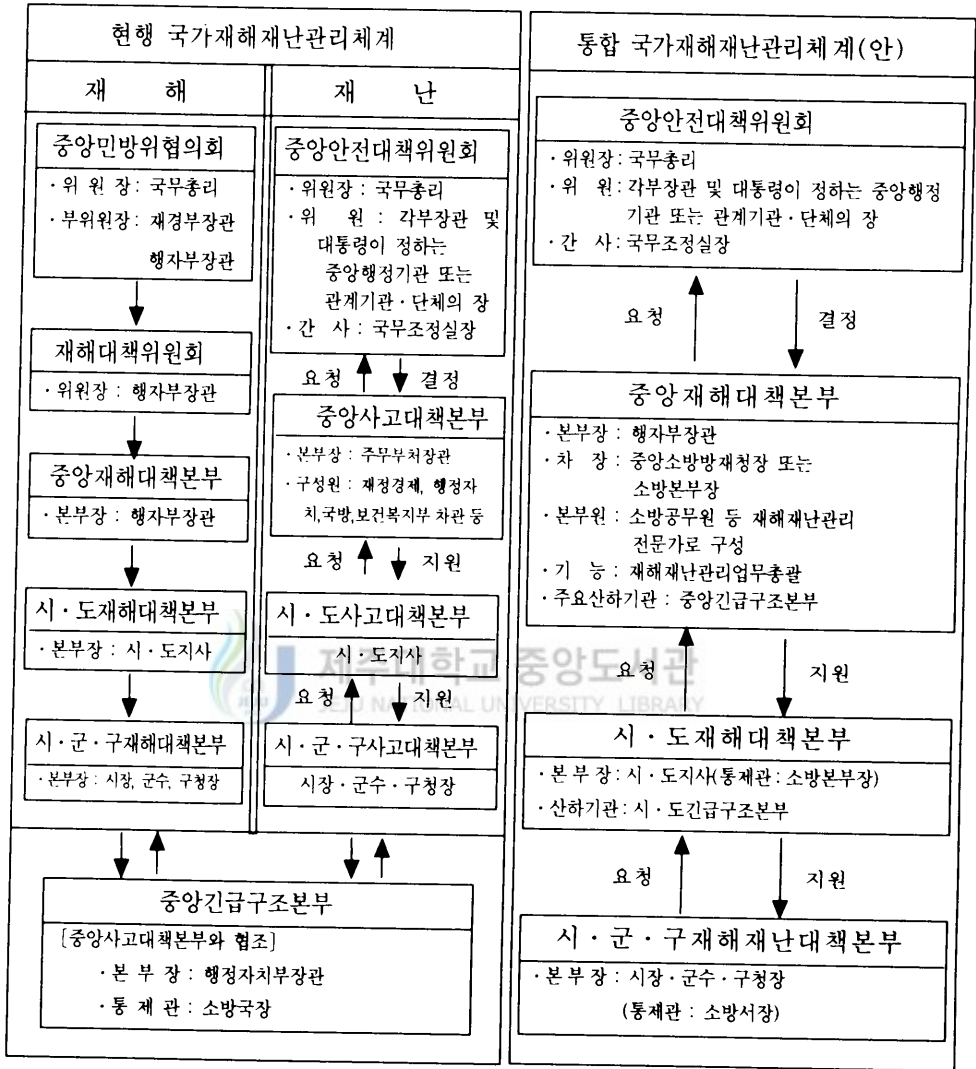 현행 국가재해재난관리체계
재 해
중앙민방위협의회
· 위 원 장 : 국무총리
· 부위원장 : 재경부장관
행자부장관
재해대책위원회
· 위원장 : 행자부장관
중앙재해대책본부
· 본부장 : 행자부장관
시 · 도재해대책본부
· 본부장 : 시 · 도지사
시 · 군 · 구재해대책본부
· 본부장 : 시장, 군수, 구청장
재 난
중앙안전대책위원회
· 위원장 : 국무총리
· 위 원 : 각부장관 및
대통령이 정하는
중앙행정기관 또는
관계기관 · 단체의 장
· 간 사 : 국무조정실장
요청 결정
중앙사고대책본부
· 본부장 : 주무부처장관
· 구성원 : 재정경제, 행정자
치,국방,보건복지부 차관 등
요청 지원
시 · 도사고대책본부
시 · 도지사
요청 지원
시 · 군 · 구사고대책본부
시장 · 군수 · 구청장
중앙긴급구조본부
[중앙사고대책본부와 협조]
· 본 부 장 : 행정자치부장관
· 통 제 관 : 소방국장
통합 국가재해재난관리체계(안)
중앙안전대책위원회
· 위원장 : 국무총리
· 위 원 : 각부장관 및 대통령이 정하는 중앙행정
기관 또는 관계기관 · 단체의 장
· 간 사 : 국무조정실장
요청 결정
중앙재해대책본부
· 본부장 : 행자부장관
· 차 장 : 중앙소방방재청장 또는
소방본부장
· 본부원 : 소방공무원 등 재해재난관리
전문가로 구성
· 기 능 : 재해재난관리업무총괄
· 주요산하기관 : 중앙긴급구조본부
요청 지원
시 · 도재해대책본부
· 본 부 장 : 시 · 도지사(통제관 : 소방본부장)
· 산하기관 : 시 · 도긴급구조본부
요청 지원
시 · 군 · 구재해재난대책본부
· 본 부 장 : 시장 · 군수 · 구청장
(통제관 : 소방서장)
제주대학교 중앙도서관
JEJU NATIONAL UNIVERSITY LIBRARY